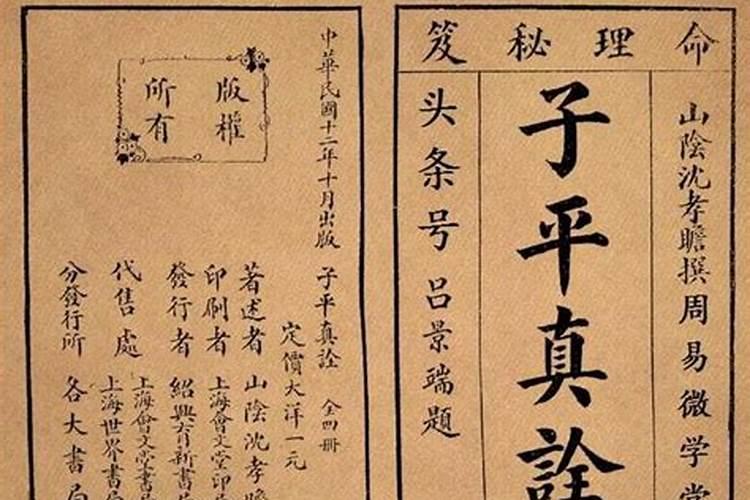 命理秘笈
山陰沈孝瞻撰周易微学堂
子平真詮
头条号吕景端题
版權
所有
中華民國十二年十月出版
子平真詮 全四冊
定價大洋一元
著述者 山陰沈孝瞻
印刷者 上海會文堂印
發行者 紹興育新書
代售處 上海會文堂書局
上海世界書局
分發行所 各大書局